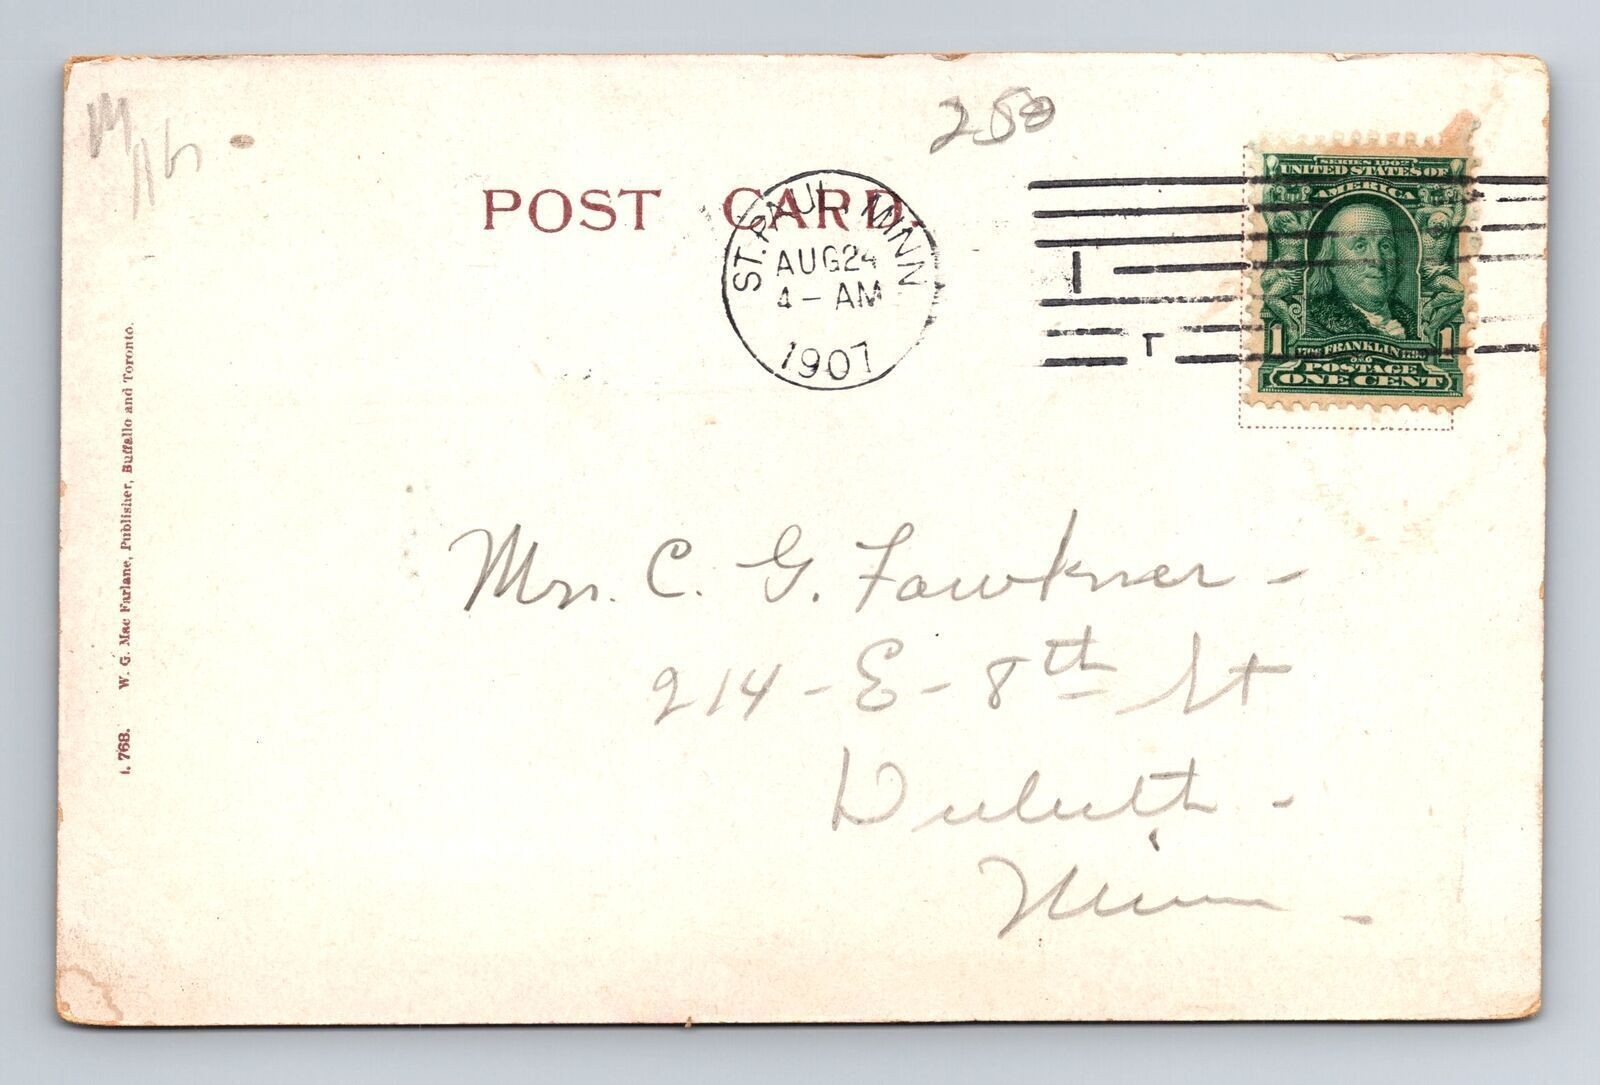 250
POST CARD.
ST. PAUL, MINN
AUG 24
4-AM
1907
1
T
SERIES 1902
UNITED STATES OF
AMERICA
1 1706 FRANKLIN 1790 1
POSTAGE
ONE CENT
Mrs. C. G. Fawkner -
214 - E - 8th St
Duluth -
Minn -
1. 768. W. G. Mac Farlane, Publisher, Buffallo and Toronto.